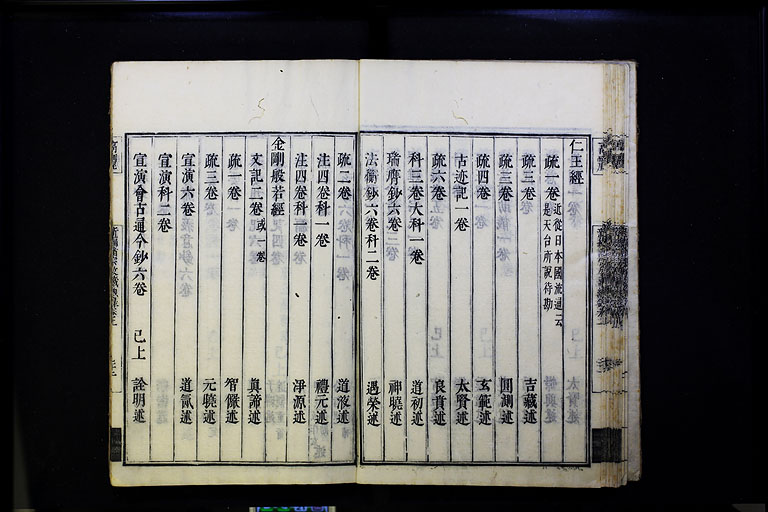 仁王經
疏一卷 近從日本國流通云是天台所說待勘
疏三卷 吉藏述
疏三卷 圓測述
疏四卷 玄範述
古迹記一卷 太賢述
疏六卷 良賁述
科三卷大科一卷 道初述
瑞膺鈔六卷 神曉述
法衡鈔六卷科二卷 遇榮述
疏二卷 道液述
注四卷科一卷 禮元述
注四卷科一卷 淨源述
金剛般若經
文記二卷或一卷 真諦述
疏一卷 智儼述
疏三卷 元曉述
宣演六卷 道氤述
宣演科二卷
宣演會古通今鈔六卷 已上 詮明述